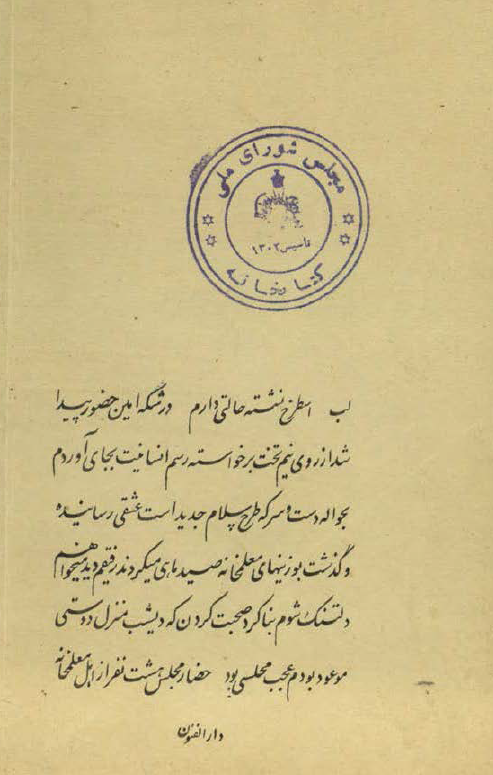 مجلس شورای ملی
تاسیس ۱۳۰۲
کتابخانه
لب اسطرخ نشسته حالتی دارم درشگه امین حضور پیدا
شد از روی نیم تخت برخواسته رسم انسانیت بجای آوردم
بحواله دست و سر که طرح سلام جدید است عشقی رسانیده
و گذشت بوزینهای معلمخانه صید ماهی میکردند رفیقم دید میخواهم
دلتنک شوم بنا کرد صحبت کردن که دیشب منزل دوستی
موعود بودم عجب مجلسی بود حضار مجلس هشت نفر از اهل معلمخانه
دارالفنون